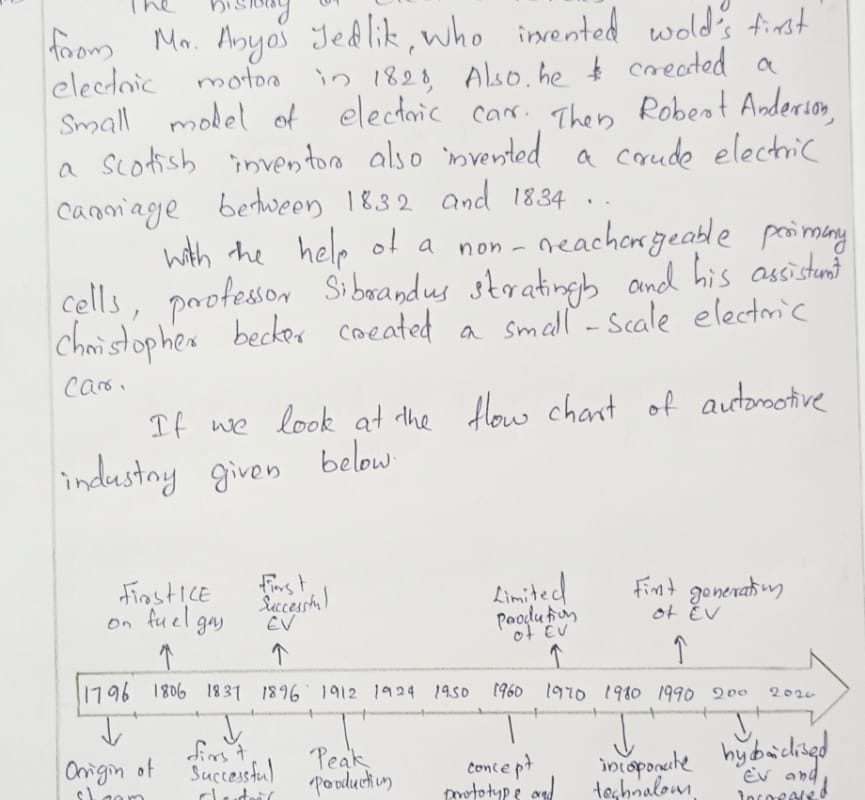 The history of
from Mr. Anyos Jedlik, who invented wold's first
electric motor in 1828, Also. he created a
small model of electric car. Then Robert Anderson,
a scotish inventor also invented a crude electric
carriage between 1832 and 1834 ..
With the help of a non-reachargeable primary
cells, professor Sibrandus stratingh and his assistant
Christopher becker created a small-scale electric
car.
If we look at the flow chart of automotive
industry given below.
First ICE on fuel gas
First Successful EV
Limited Prodution of EV
First generation of EV
1796 1806 1837 1896 1912 1924 1950 1960 1970 1980 1990 200
Origin of
first Successful
Peak Production
concept prototype and
incoporate technology
hybridised EV and